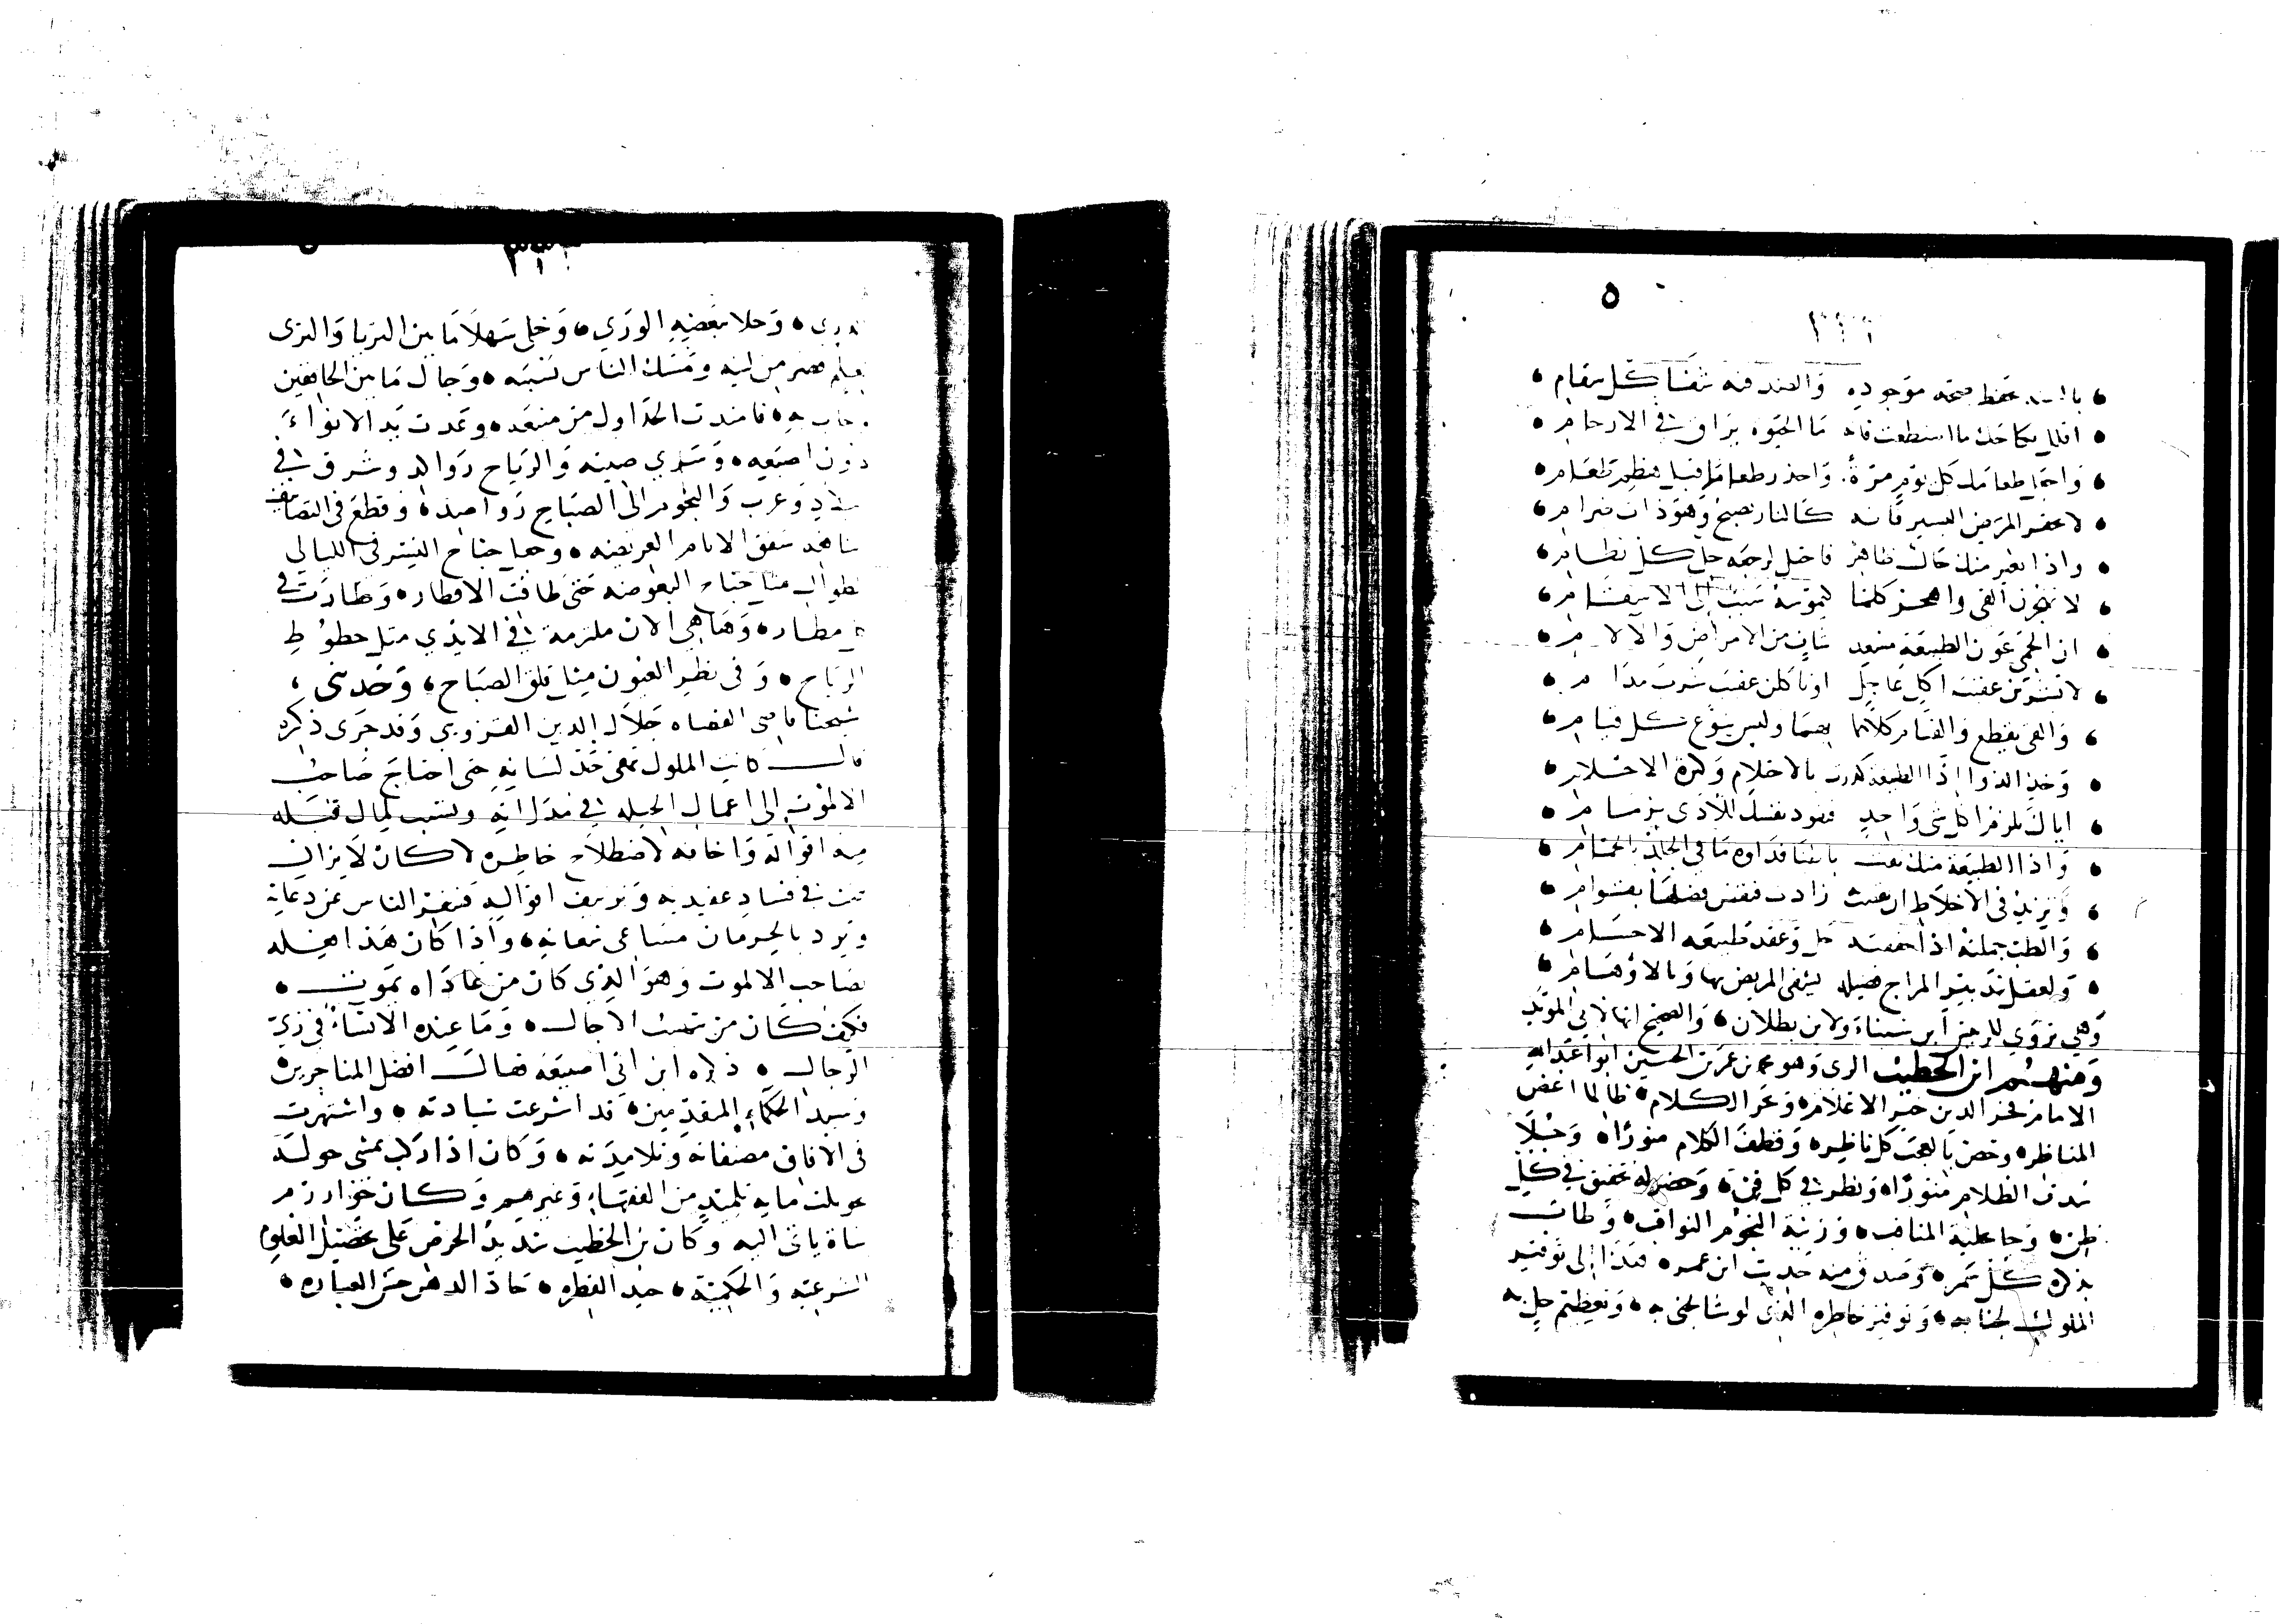 ٥
بالشد تحفظ صحة موجودة والضد فيه شفا كل سقام
اقلل نكاحك ما استطعت فانه ما الحيوة يراق في الارحام
واجعل طعامك كل يوم مرة واحذر طعاما قبل هضم طعام
لا تحقر المرض اليسير فانه كالنار يصبح وهو ذات ضرام
واذا تغير منك حال ظاهر فاحتل لرجعة حل كل نظام
لا تهجرن القي واهجر كلما كيموسه سبب الى الاسقام
ان الحمى عون الطبيعة مسعد شاف من الامراض والالام
لا تشربن عقيب اكل عاجل او تاكلن عقيب شرب مدام
والقي يقطع والقيام كلاهما بهما وليس بنوع كل قيام
وخذ الدوا اذا الطبيعة كدرت بالاحلام وكثرة الاحتلام
اياك تلزم اكل شي واحد فتقود نفسك للاذى بزمام
واذا الطبيعة منك نقت باطنا فدواء ما في الجلد بالحمام
وتزيد في الاخلاط ان نقصت زادت فنقص فضلها بقوام
والطب جملته اذا حققته حل وعقد طبيعة الاجسام
ولعقل تدبير المزاج فضيلة يشفى المريض بها وبالاوهام
وهي تروى للرجز ابن سيناء ولابن بطلان والصحيح انها لابي المويد
ومنهم ابن الخطيب الرى وهو محمد بن عمر بن الحسين ابو عبد الله
الامام فخر الدين خير الاعلام وبحر الكلام طالما اغص
المناظره وخص بالعجب كل ناظره وقطف الكلام منورا وجلا
سدف الظلام منورا ونظر في كل فن وحضر له تحقيق في كل
ظن وحا علية المناقب وزينة النجوم الثواقب وطاب
بذكره كل سمر وصدق منه حديث ابن عمر هذا الى توقير
الملوك لجنابه وتوفير خاطره الذى لو شا لجنى به وتعظيم حل به
الورى وحلا بعضيه الورى وخلى سهلا ما بين الثريا والثرى
وتمسك الناس بسببه وجال ما بين الخافقين
فامتدت الجداول من منبعه وعدت يد الانواء
دون اصبعه وسرى صيته والرياح روالد وشرق في
وغرب والنجوم الى الصباح رواصده وقطع في التصانيف
شفق الايام العريضه وجعل جناح النسر في الليالي
البعوضه حتى طافت الاقطار وطارت في
مطاره وها هي الان ملزمة في الايدي مثل خطوط
الراح وفي نظر العيون مثل فلق الصباح وحدثنى
شيخنا قاضى القضاه جلال الدين القزوينى وقد جرى ذكره
قال كانت الملوك تتقى حد لسانه حتى احتاج صاحب
الالموت الى اعمال الحيله في مداراته وتسبب لمال قبله
منه اقواله واخافه لاصطلاح خاطره لا كان لا يزال
يبث في فساد عقيدته وتزييف اقواله فنفر الناس عن دعاته
وترد بالحرمان مساعى نعاته واذا كان هذا فعله
بصاحب الالموت وهو الذي كان من عاداه يموت
فكيف كان من تمسه الاجال وما عنده الا نساء في زي
الرجال ذكره ابن ابي اصيبعة فقال افضل المتاخرين
وسيد الحكماء المتقدمين قد اشرعت سيادته واشتهرت
في الافاق مصنفاته وتلامذته وكان اذا ركب يمشى حوله
نحو ثلث مايه تلميذ من الفقهاء وغيرهم وكان خوارزم
شاه ياتى اليه وكان ابن الخطيب شديد الحرص على تحصيل العلوم
الشرعية والحكمية جيد الفطره حاد الذهن حسن العباره